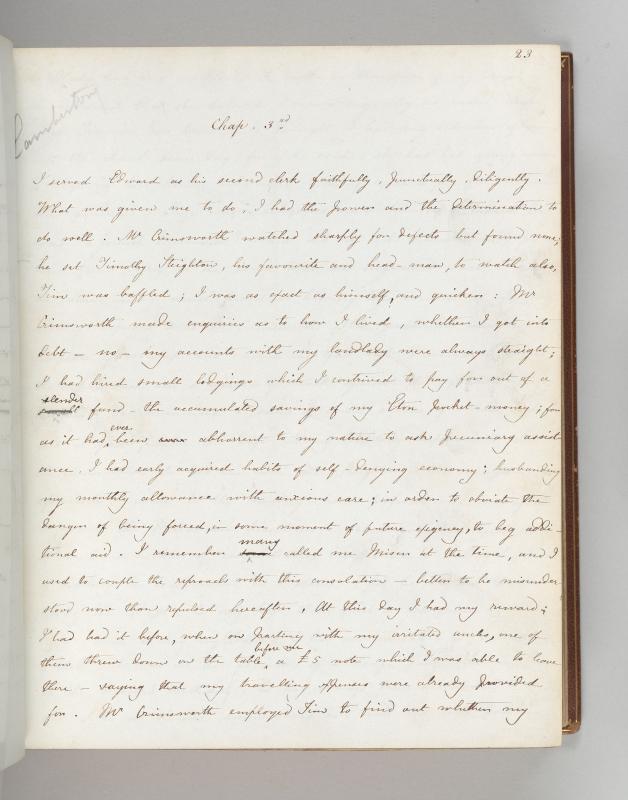 23
Lamberton
Chap. 3rd
I served Edward as his second clerk faithfully, punctually, diligently.
What was given me to do, I had the power and the determination to
do well. Mr Crimsworth watched sharply for defects but found none;
he set Timothy Steighton, his favourite and head-man, to watch also,
Tim was baffled; I was as exact as himself, and quicker: Mr
Crimsworth made enquiries as to how I lived, whether I got into
debt – no – my accounts with my landlady were always straight;
I had hired small lodgings which I contrived to pay for out of a
slender
fund – the accumulated savings of my Eton pocket-money; for
ever
as it had been abhorrent to my nature to ask pecuniary assist-
ance, I had early acquired habits of self-denying economy; husbanding
my monthly allowance with anxious care; in order to obviate the
danger of being forced, in some moment of future exigency, to beg addi-
many
tional aid. I remember called me Miser at the time, and I
used to couple the reproach with this consolation – better to be misunder-
stood now than repulsed hereafter. At this day I had my reward;
I had had it before, when on parting with my irritated uncles, one of
before me
them threw down on the table, a £5 note which I was able to leave
there – saying that my travelling expenses were already provided
for. Mr Crimsworth employed Tim to find out whether my